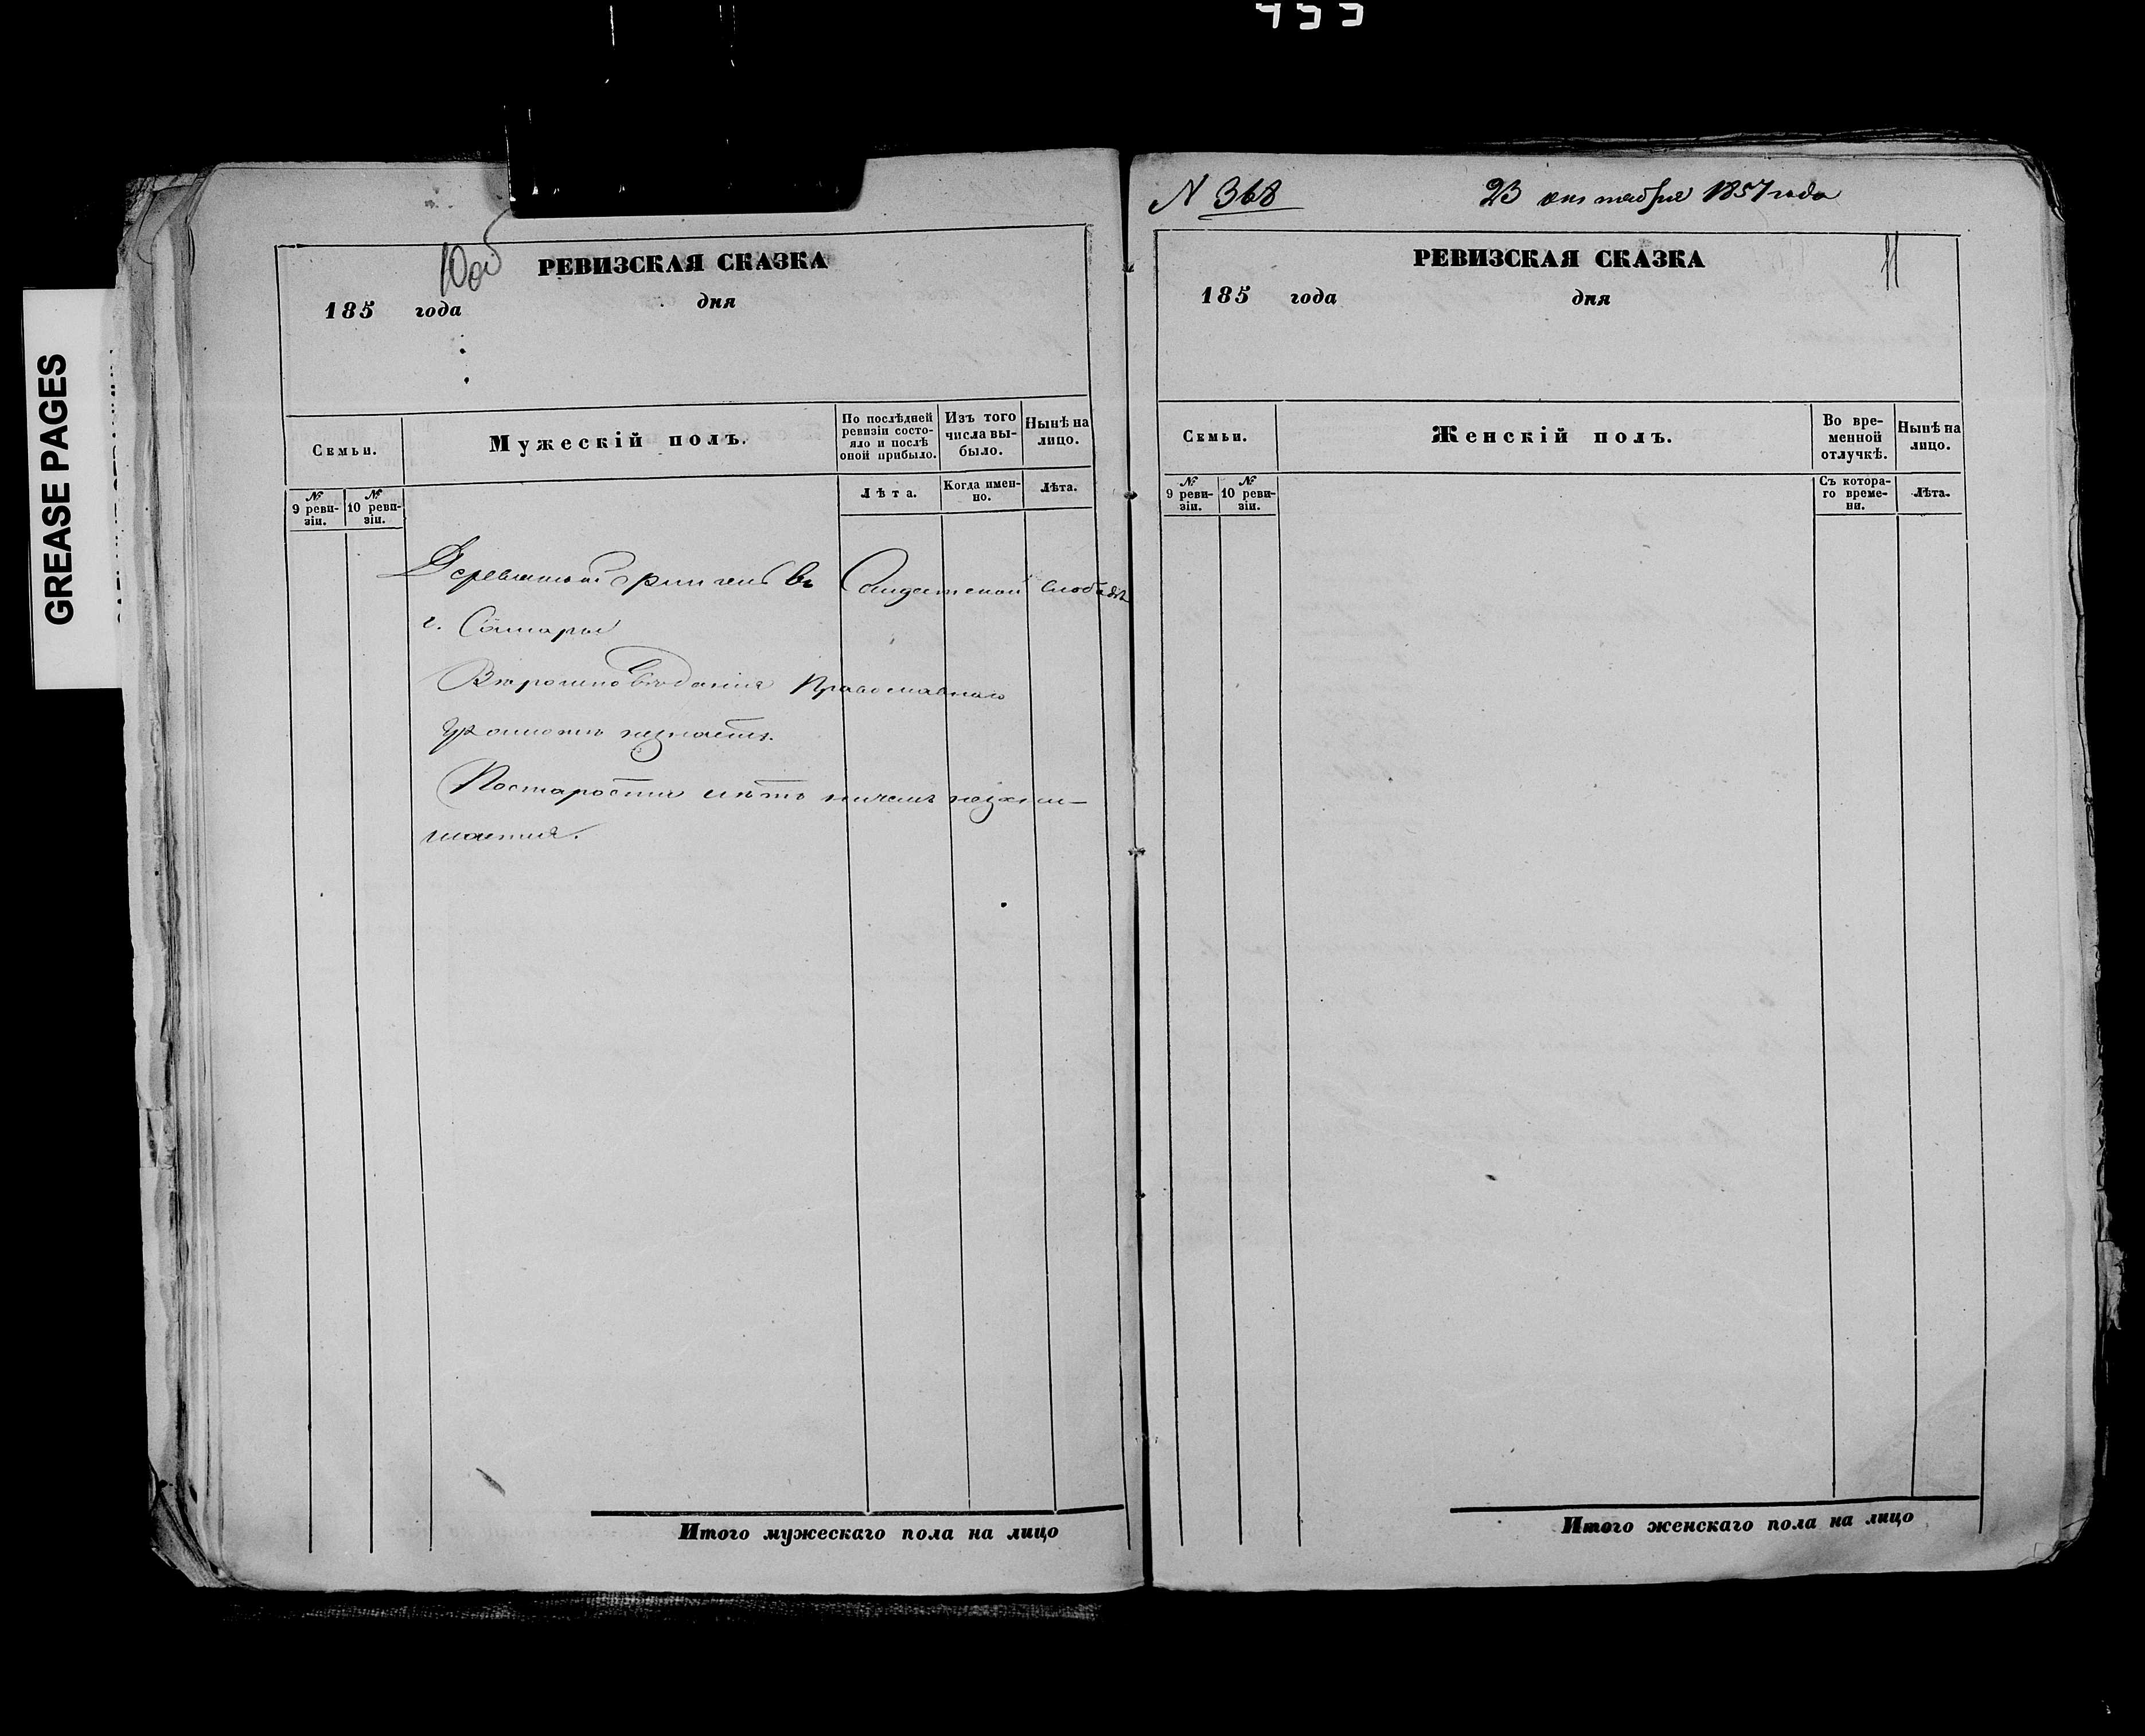 GREASE PAGES
10об
РЕВИЗСКАЯ СКАЗКА
185 года дня
Семьи.
Мужескій полъ.
По послѣдней ревизіи состо-
яло и послѣ оной прибыло.
Изъ того числа вы-
было.
Нынѣ на лицо.
№ 9 реви-
зіи.
№ 10 реви-
зіи.
Лѣта.
Когда имен-
но.
Лѣта.
въ Солдатской слободѣ
г. Самары
Вѣроисповѣданія Православнаго
Грамотѣ незнаетъ.
Постарости лѣтъ ничемъ незани-
мается.
Итого мужескаго пола на лицо
N 368
23 октября 1857 года
11
РЕВИЗСКАЯ СКАЗКА
185 года дня
Семьи.
Женскій полъ.
Во вре-
менной
отлучкѣ.
Нынѣ на
лицо.
№ 9 реви-
зіи.
№ 10 реви-
зіи.
Съ котора-
го време-
ни.
Лѣта.
Итого женскаго пола на лицо